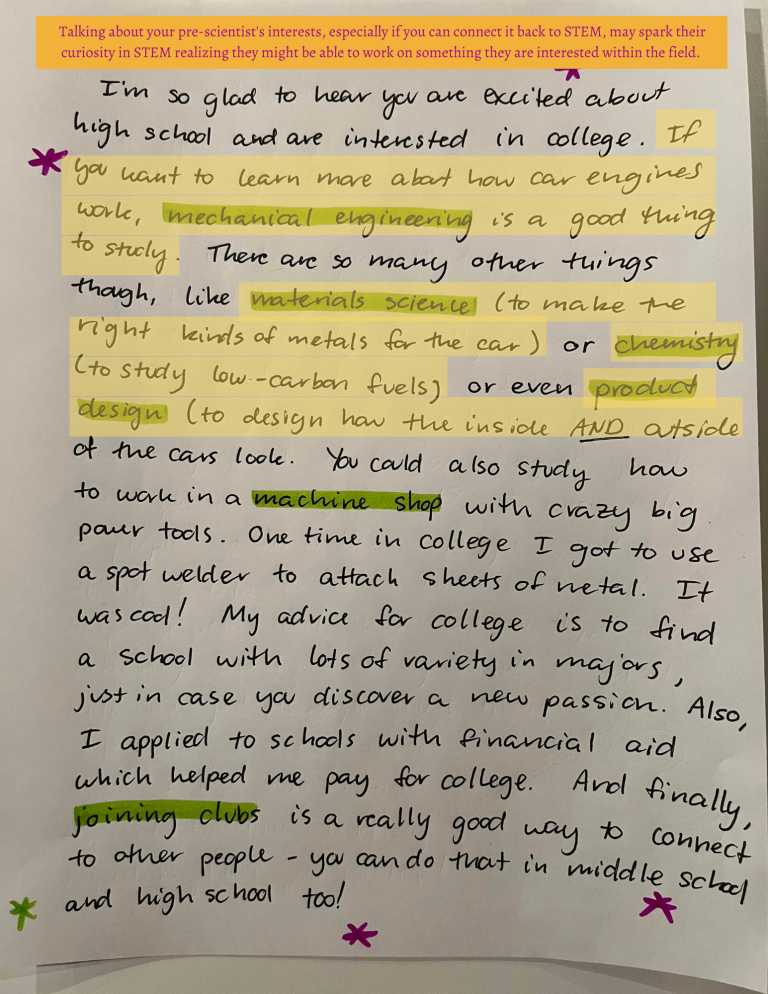 Talking about your pre-scientist's interests, especially if you can connect it back to STEM, may spark their
curiosity in STEM realizing they might be able to work on something they are interested within the field.
I'm so glad to hear you are excited about
high school and are interested in college. If
you want to learn more about how car engines
work, mechanical engineering is a good thing
to study. There are so many other things
though, like materials science (to make the
right kinds of metals for the car) or chemistry
(to study low-carbon fuels) or even product
design (to design how the inside AND outside
of the cars look. You could also study how
to work in a machine shop with crazy big
power tools. One time in college I got to use
a spot welder to attach sheets of metal. It
was cool! My advice for college is to find
a school with lots of variety in majors,
just in case you discover a new passion. Also,
I applied to schools with financial aid
which helped me pay for college. And finally,
joining clubs is a really good way to connect
to other people - you can do that in middle school
and high school too!